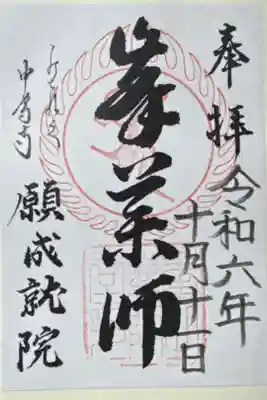 奉拝
令和六年
十月十一日
峯薬師
中尊寺
願成就院